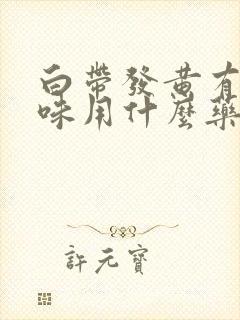 白帶發黃有
味用什麼藥
許元寶